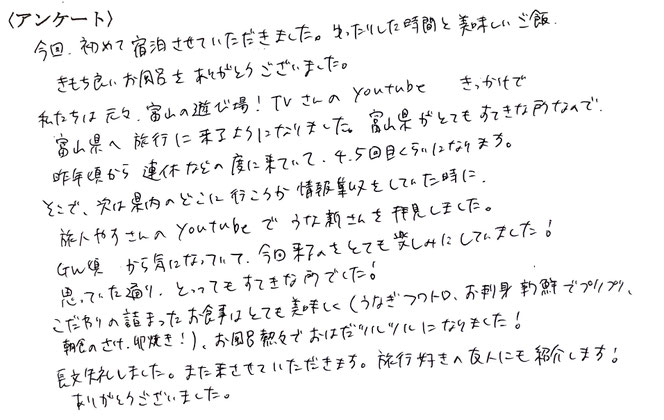 〈アンケート〉
今回、初めて宿泊させていただきました。ゆったりした時間と美味しいご飯、
きもち良いお風呂をありがとうございました。
私たちは元々、富山の遊び場！TVさんのyoutube きっかけで
富山県へ旅行に来るようになりました。富山県がとてもすてきな所なので、
昨年頃から連休などの度に来ていて、4.5回目くらいになります。
そこで、次は県内のどこに行こうか情報収集をしていた時に、
旅人やすさんのyoutubeでうな新さんを拝見しました。
GW頃 から気になっていて、今回来るのをとても楽しみにしていました！
思っていた通り、とってもすてきな所でした！
こだわりの詰まったお食事はとても美味しく（うなぎフワトロ、お刺身新鮮でプリプリ、
朝食のさけ、卵焼き！）、お風呂熱々でおはだツルツルになりました！
長文失礼しました。また来させていただきます。旅行好きの友人にも紹介します！
ありがとうございました。